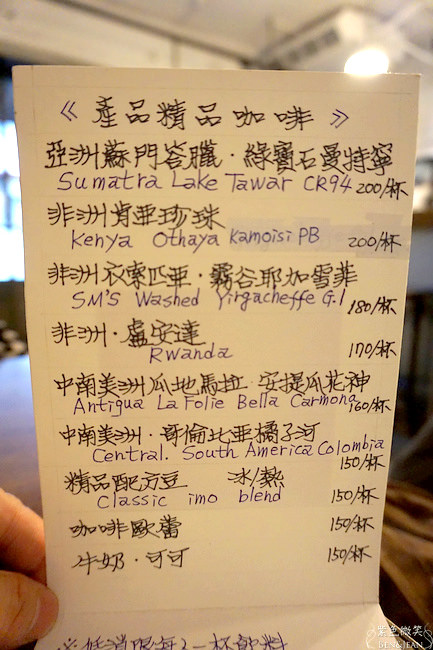 《 產品精品咖啡 》
亞洲蘇門答臘・綠寶石曼特寧
Sumatra Lake Tawar CR94 200/杯
非洲肯亞珍珠
Kenya Othaya Kamoisi PB 200/杯
非洲衣索匹亞・霧谷耶加雪菲
SM'S Washed Yirgacheffe G.1 180/杯
非洲・盧安達
Rwanda 170/杯
中南美洲瓜地馬拉・安提瓜花神
Antigua La Folie Bella Carmona 160/杯
中南美洲・哥倫比亞橘子河
Central. South America Colombia
150/杯
精品配方豆 冰/熱
Classic imo blend 150/杯
咖啡歐蕾 150/杯
牛奶・可可 150/杯
※低消限每人一杯飲料
紫色微笑
BENQJEAN